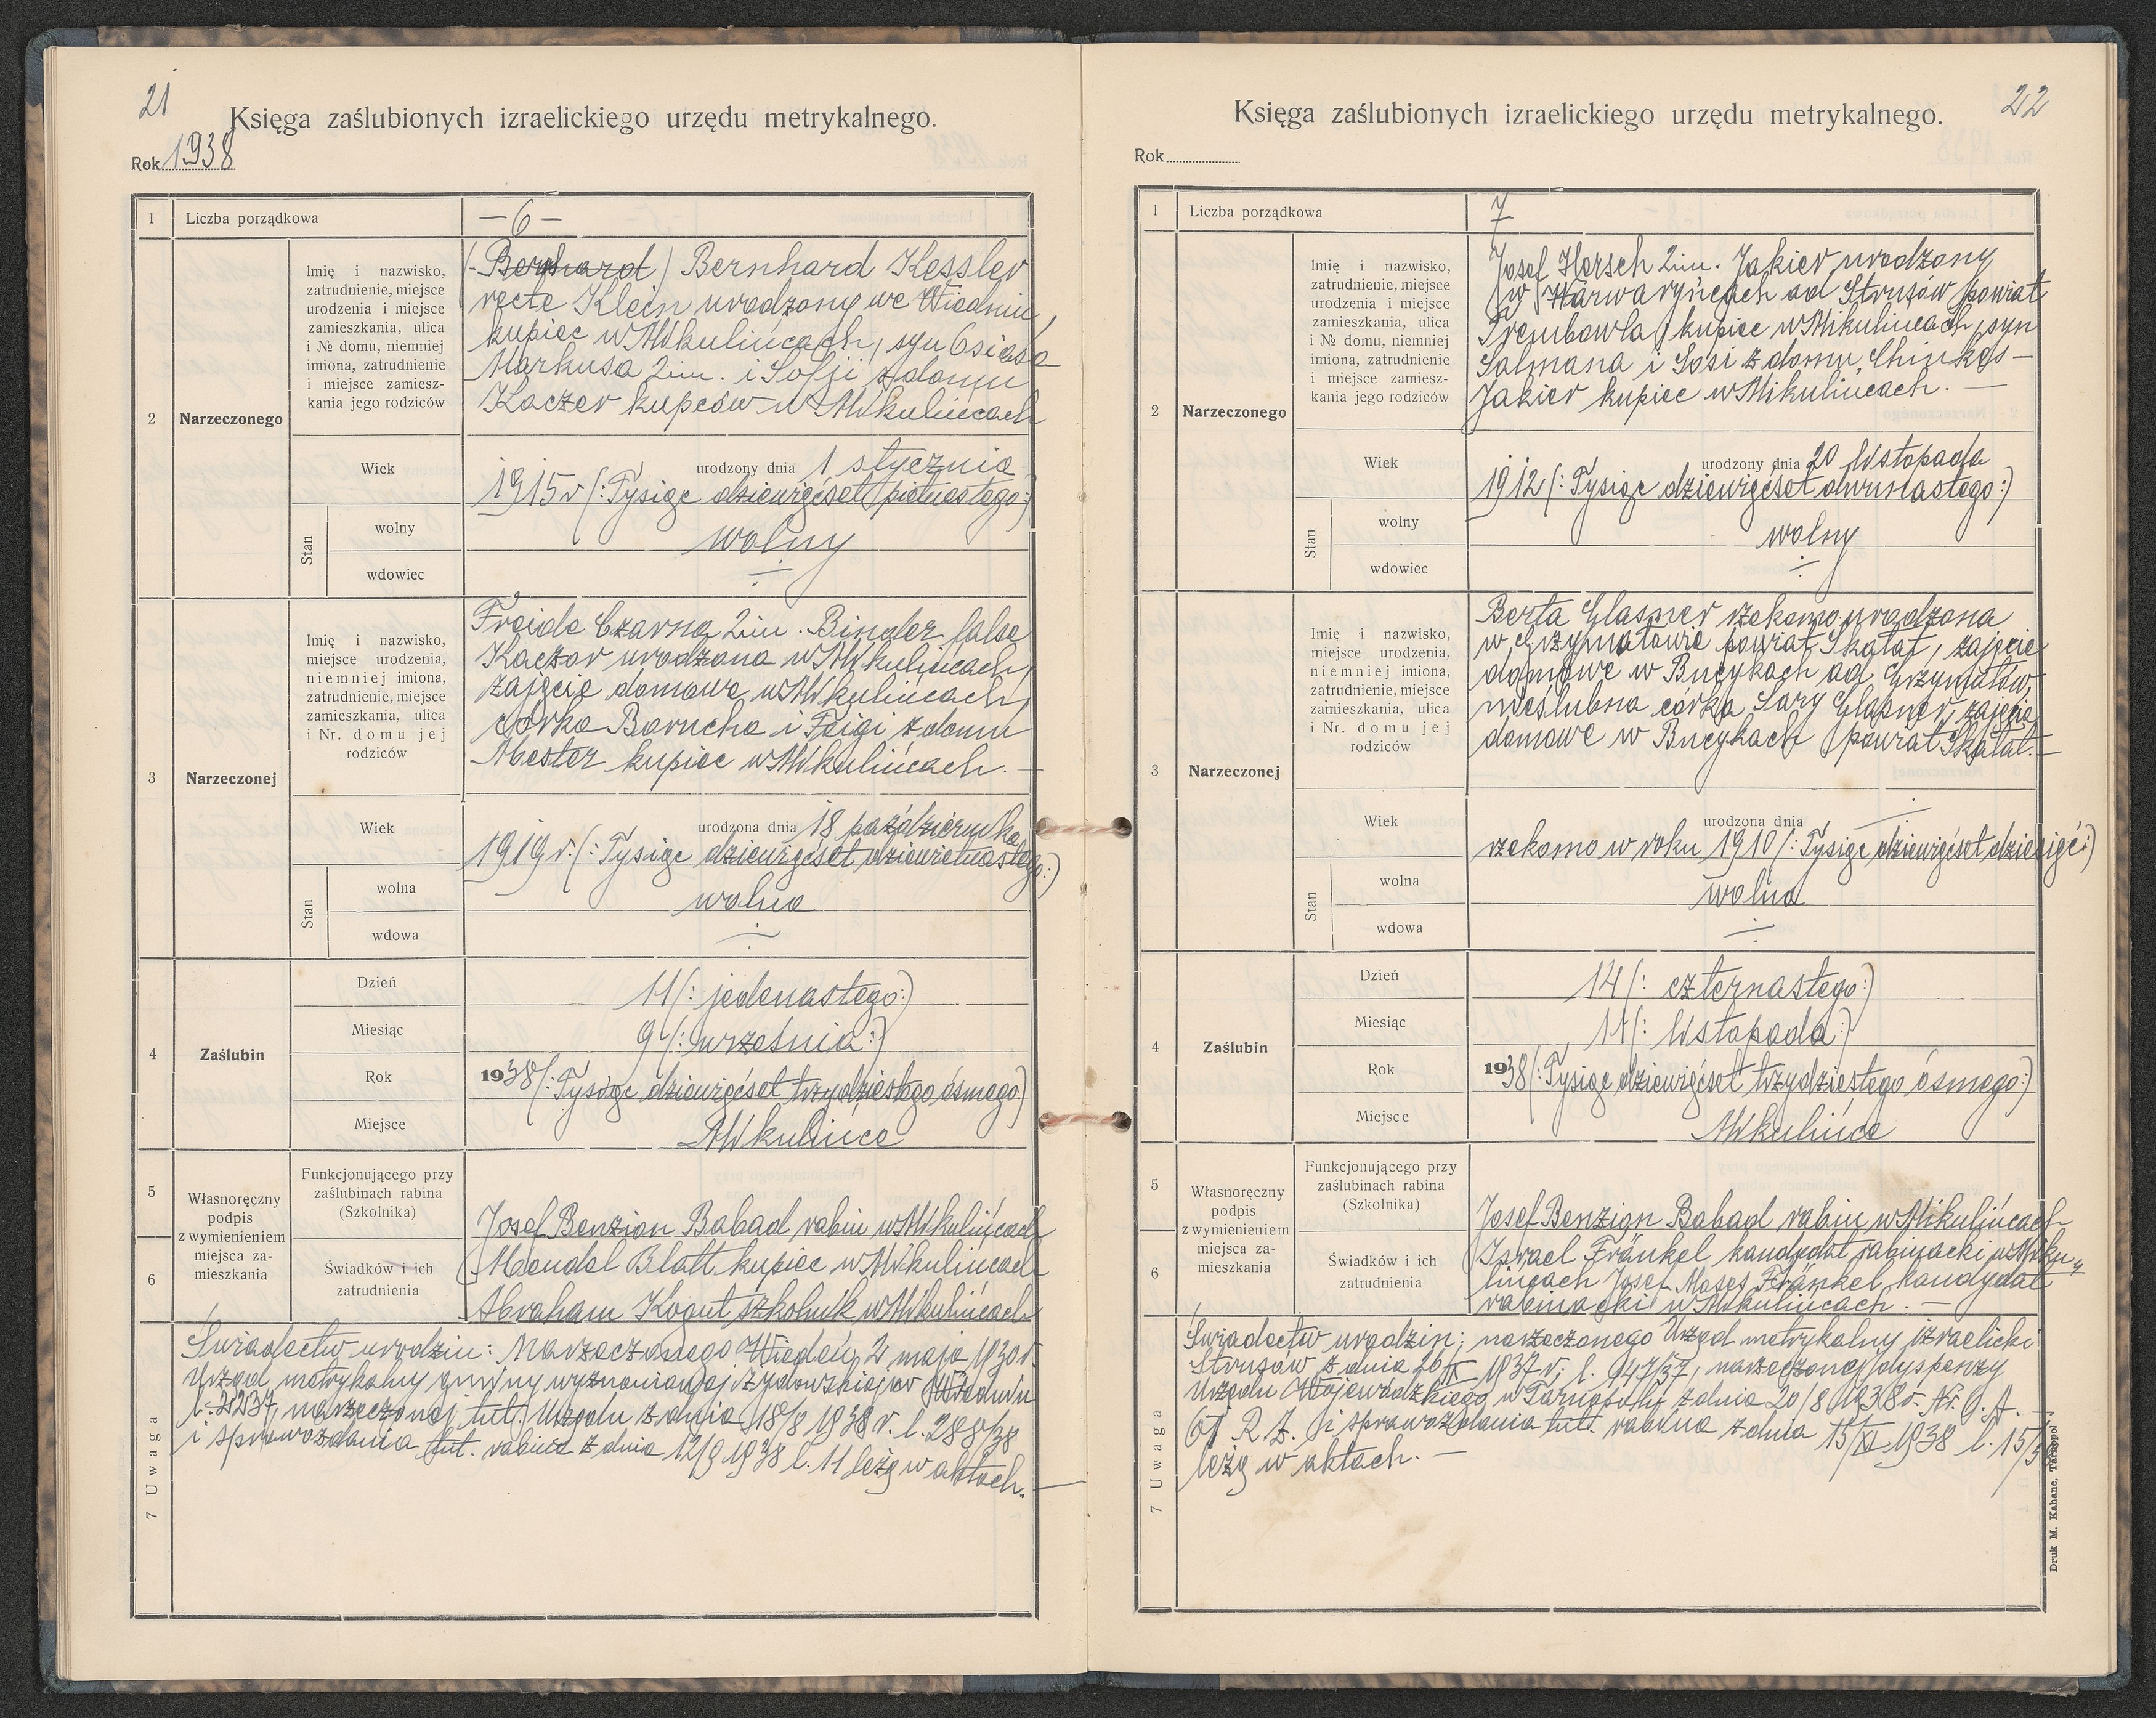 21
Księga zaślubionych izraelickiego urzędu metrykalnego.
Rok 1938
1 Liczba porządkowa — 6 —
2 Narzeczonego
Imię i nazwisko,
zatrudnienie, miejsce
urodzenia i miejsce
zamieszkania, ulica
i № domu, niemniej
imiona, zatrudnienie
i miejsce zamiesz-
kania jego rodziców
(Bernhard) Bernhard Kessler
recte Klein urodzony we Wiedniu,
kupiec w Mikulińcach, syn Osiasa
Markusa 2im. i Sofji z domu
Kaczer kupców w Mikulińcach
Wiek
urodzony dnia 1 stycznia
1915 r (: Tysiąc dziewięćset piętnastego :)
Stan
wolny
wolny
wdowiec
3 Narzeczonej
Imię i nazwisko,
miejsce urodzenia,
niemniej imiona,
zatrudnienie, miejsce
zamieszkania, ulica
i Nr. domu jej
rodziców
Freide Czarna 2im. Binder false
Kaczor urodzona w Mikulińcach,
zajęcie domowe w Mikulińcach,
córka Barucha i Feigi z domu
Mester kupiec w Mikulińcach. —
Wiek
urodzona dnia 18 października
1919 r. (: Tysiąc dziewięćset dziewiętnastego :)
Stan
wolna
wolna
wdowa
4 Zaślubin
Dzień 11 (: jedenastego :)
Miesiąc 9 (: września :)
Rok 1938 (: Tysiąc dziewięćset trzydziestego ósmego)
Miejsce Mikulińce
5
6
Własnoręczny
podpis
z wymienieniem
miejsca za-
mieszkania
Funkcjonującego przy
zaślubinach rabina
(Szkolnika)
Josef Benzion Babad rabin w Mikulińcach
Świadków i ich
zatrudnienia
Mendel Blatt kupiec w Mikulińcach
Abraham Kogut szkolnik w Mikulińcach
7 Uwaga
Świadectw urodzin: Narzeczonego Wiedeń, 2 maja 1930 r.
Urząd metrykalny gminy wyznaniowej żydowskiej w Wiedniu
l. 2237, narzeczonej tut. Urzędu z dnia 18/8 1938 r. l. 288/38
i sprawozdania tut. rabina z dnia 12/9 1938 l. 11 leżą w aktach. —
22
Księga zaślubionych izraelickiego urzędu metrykalnego.
Rok
1 Liczba porządkowa 7
2 Narzeczonego
Imię i nazwisko,
zatrudnienie, miejsce
urodzenia i miejsce
zamieszkania, ulica
i № domu, niemniej
imiona, zatrudnienie
i miejsce zamiesz-
kania jego rodziców
Josef Hersch 2im. Jakier urodzony
w Warwaryńcach ad Strusów powiat
Trembowla, kupiec w Mikulińcach, syn
Salmana i Sosi z domu Chinkes —
Jakier kupiec w Mikulińcach. —
Wiek
urodzony dnia 20 listopada
1912 (: Tysiąc dziewięćset dwunastego :)
Stan
wolny
wolny
wdowiec
3 Narzeczonej
Imię i nazwisko,
miejsce urodzenia,
niemniej imiona,
zatrudnienie, miejsce
zamieszkania, ulica
i Nr. domu jej
rodziców
Berta Glasner rzekomo urodzona
w Grzymałowie powiat Skałat, zajęcie
domowe w Bucykach ad Grzymałów,
nieślubna córka Sary Glasner, zajęcie
domowe w Bucykach powiat Skałat. —
Wiek
urodzona dnia —
rzekomo w roku 1910 (: Tysiąc dziewięćset dziesięć :)
Stan
wolna
wolna
wdowa
4 Zaślubin
Dzień 14 (: czternastego :)
Miesiąc 11 (: listopada :)
Rok 1938 (: Tysiąc dziewięćset trzydziestego ósmego :)
Miejsce Mikulińce
5
6
Własnoręczny
podpis
z wymienieniem
miejsca za-
mieszkania
Funkcjonującego przy
zaślubinach rabina
(Szkolnika)
Josef Benzion Babad rabin w Mikulińcach
Świadków i ich
zatrudnienia
Israel Fränkel kandydat rabinacki w Miku-
lińcach Josef Moses Fränkel kandydat
rabinacki w Mikulińcach. —
7 Uwaga
Świadectw urodzin; narzeczonego Urząd metrykalny izraelicki
Strusów z dnia 26/IX 1937 r; l. 147/37, narzeczonej dyspenzy
Urzędu Wojewódzkiego w Tarnopolu z dnia 20/8 1938 r. Nr. O. A. —
61 R. Ż. i sprawozdania tut. rabina z dnia 15/XI 1938 l. 15/38
leżą w aktach. —
Druk M. Kahane, Tarnopol